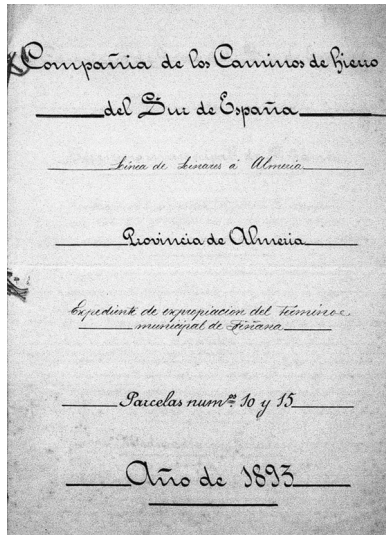 Compañia de los Caminos de hierro
del Sur de España
Linea de Linares à Almeria
Provincia de Almeria
Expediente de expropiacion del Término
municipal de Fiñana
Parcelas numºs 10 y 15
Año de 1893